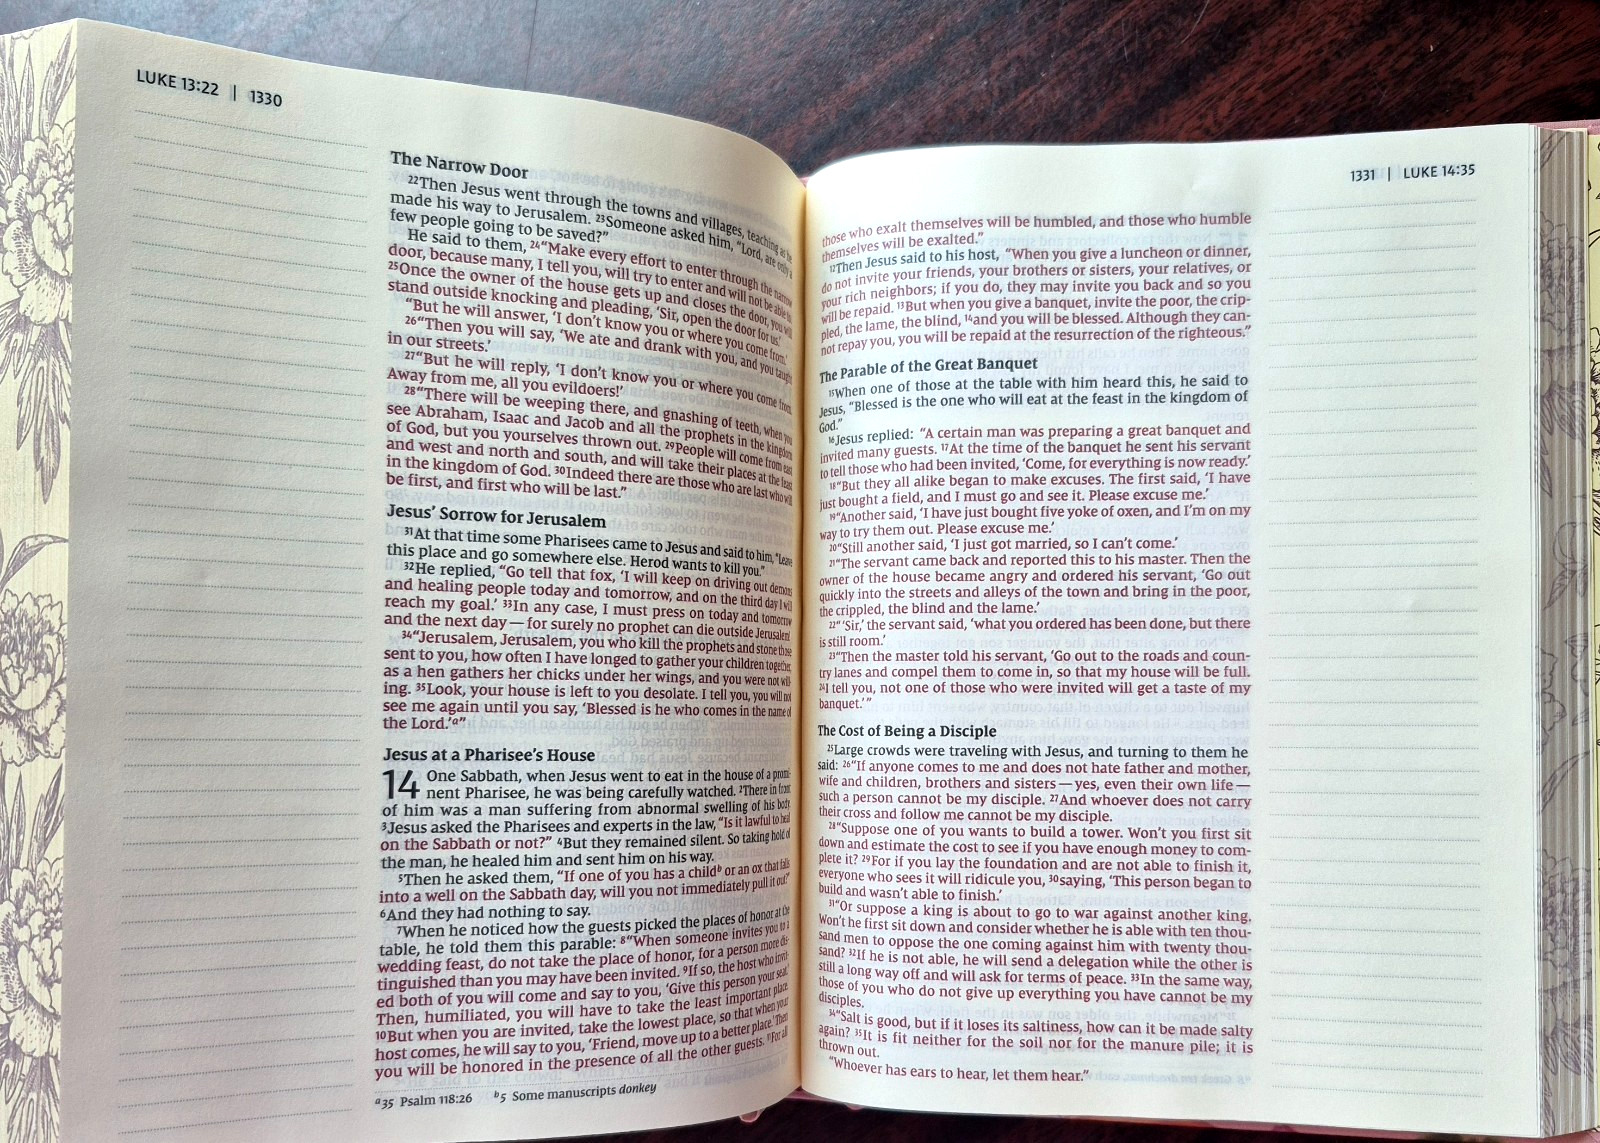 LUKE 13:22 | 1330
The Narrow Door
22Then Jesus went through the towns and villages, teaching as he
made his way to Jerusalem. 23Someone asked him, “Lord, are only a
few people going to be saved?”
He said to them, 24“Make every effort to enter through the narrow
door, because many, I tell you, will try to enter and will not be able to.
25Once the owner of the house gets up and closes the door, you will
stand outside knocking and pleading, ‘Sir, open the door for us.’
“But he will answer, ‘I don’t know you or where you come from.’
26“Then you will say, ‘We ate and drank with you, and you taught
in our streets.’
27“But he will reply, ‘I don’t know you or where you come from.
Away from me, all you evildoers!’
28“There will be weeping there, and gnashing of teeth, when you
see Abraham, Isaac and Jacob and all the prophets in the kingdom
of God, but you yourselves thrown out. 29People will come from east
and west and north and south, and will take their places at the feast
in the kingdom of God. 30Indeed there are those who are last who will
be first, and first who will be last.”
Jesus’ Sorrow for Jerusalem
31At that time some Pharisees came to Jesus and said to him, “Leave
this place and go somewhere else. Herod wants to kill you.”
32He replied, “Go tell that fox, ‘I will keep on driving out demons
and healing people today and tomorrow, and on the third day I will
reach my goal.’ 33In any case, I must press on today and tomorrow
and the next day — for surely no prophet can die outside Jerusalem!
34“Jerusalem, Jerusalem, you who kill the prophets and stone those
sent to you, how often I have longed to gather your children together,
as a hen gathers her chicks under her wings, and you were not will-
ing. 35Look, your house is left to you desolate. I tell you, you will not
see me again until you say, ‘Blessed is he who comes in the name of
the Lord.’a”
Jesus at a Pharisee’s House
14 One Sabbath, when Jesus went to eat in the house of a promi-
nent Pharisee, he was being carefully watched. 2There in front
of him was a man suffering from abnormal swelling of his body.
3Jesus asked the Pharisees and experts in the law, “Is it lawful to heal
on the Sabbath or not?” 4But they remained silent. So taking hold of
the man, he healed him and sent him on his way.
5Then he asked them, “If one of you has a childb or an ox that falls
into a well on the Sabbath day, will you not immediately pull it out?”
6And they had nothing to say.
7When he noticed how the guests picked the places of honor at the
table, he told them this parable: 8“When someone invites you to a
wedding feast, do not take the place of honor, for a person more dis-
tinguished than you may have been invited. 9If so, the host who invit-
ed both of you will come and say to you, ‘Give this person your seat.’
Then, humiliated, you will have to take the least important place.
10But when you are invited, take the lowest place, so that when your
host comes, he will say to you, ‘Friend, move up to a better place.’ Then
you will be honored in the presence of all the other guests. 11For all
a35 Psalm 118:26 b5 Some manuscripts donkey
1331 | LUKE 14:35
those who exalt themselves will be humbled, and those who humble
themselves will be exalted.”
12Then Jesus said to his host, “When you give a luncheon or dinner,
do not invite your friends, your brothers or sisters, your relatives, or
your rich neighbors; if you do, they may invite you back and so you
will be repaid. 13But when you give a banquet, invite the poor, the crip-
pled, the lame, the blind, 14and you will be blessed. Although they can-
not repay you, you will be repaid at the resurrection of the righteous.”
The Parable of the Great Banquet
15When one of those at the table with him heard this, he said to
Jesus, “Blessed is the one who will eat at the feast in the kingdom of
God.”
16Jesus replied: “A certain man was preparing a great banquet and
invited many guests. 17At the time of the banquet he sent his servant
to tell those who had been invited, ‘Come, for everything is now ready.’
18“But they all alike began to make excuses. The first said, ‘I have
just bought a field, and I must go and see it. Please excuse me.’
19“Another said, ‘I have just bought five yoke of oxen, and I’m on my
way to try them out. Please excuse me.’
20“Still another said, ‘I just got married, so I can’t come.’
21“The servant came back and reported this to his master. Then the
owner of the house became angry and ordered his servant, ‘Go out
quickly into the streets and alleys of the town and bring in the poor,
the crippled, the blind and the lame.’
22“ ‘Sir,’ the servant said, ‘what you ordered has been done, but there
is still room.’
23“Then the master told his servant, ‘Go out to the roads and coun-
try lanes and compel them to come in, so that my house will be full.
24I tell you, not one of those who were invited will get a taste of my
banquet.’ ”
The Cost of Being a Disciple
25Large crowds were traveling with Jesus, and turning to them he
said: 26“If anyone comes to me and does not hate father and mother,
wife and children, brothers and sisters — yes, even their own life —
such a person cannot be my disciple. 27And whoever does not carry
their cross and follow me cannot be my disciple.
28“Suppose one of you wants to build a tower. Won’t you first sit
down and estimate the cost to see if you have enough money to com-
plete it? 29For if you lay the foundation and are not able to finish it,
everyone who sees it will ridicule you, 30saying, ‘This person began to
build and wasn’t able to finish.’
31“Or suppose a king is about to go to war against another king.
Won’t he first sit down and consider whether he is able with ten thou-
sand men to oppose the one coming against him with twenty thou-
sand? 32If he is not able, he will send a delegation while the other is
still a long way off and will ask for terms of peace. 33In the same way,
those of you who do not give up everything you have cannot be my
disciples.
34“Salt is good, but if it loses its saltiness, how can it be made salty
again? 35It is fit neither for the soil nor for the manure pile; it is
thrown out.
“Whoever has ears to hear, let them hear.”